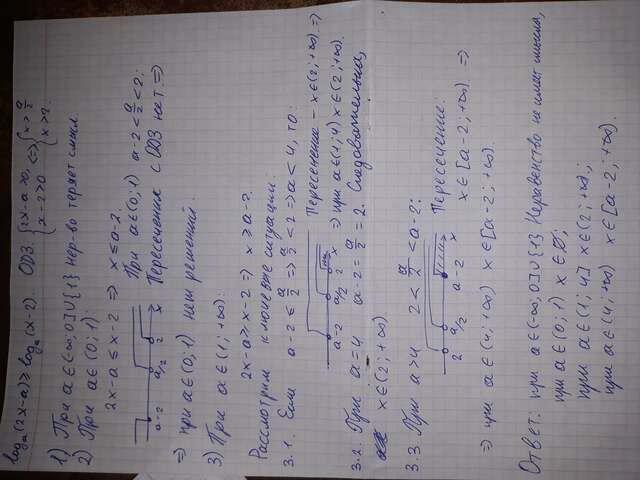 logₐ(2x-a) ≥ logₐ(x-2). ОДЗ { 2x-a>0, x-2>0 <=> { x > a/2 x > 2.
1) При a∈(-∞; 0]∪{1} нер-во теряет смысл.
2) При a∈(0; 1):
2x-a ≤ x-2 => x ≤ a-2. При a∈(0; 1) a-2 < a/2 < 2:
a-2 a/2 2 x Пересечения с ОДЗ нет =>
=> при a∈(0; 1) нет решений.
3) При a∈(1; +∞):
2x-a ≥ x-2 => x ≥ a-2.
Рассмотрим ключевые ситуации:
3.1. Если a-2 ≤ a/2 => a/2 < 2 => a < 4, то:
a-2 a/2 2 x Пересечение - x∈(2; +∞) =>
=> при a∈(1; 4) x∈(2; +∞).
3.2. При a=4 a-2 = a/2 = 2. Следовательно,
x∈(2; +∞)
3.3. При a>4 2 < a/2 < a-2:
2 a/2 a-2 x Пересечение:
x∈[a-2; +∞) =>
=> при a∈(4; +∞) x∈[a-2; +∞).
Ответ: при a∈(-∞; 0]∪{1} Неравенство не имеет смысла,
при a∈(0; 1) x∈∅;
при a∈(1; 4] x∈(2; +∞);
при a∈(4; +∞) x∈[a-2; +∞).